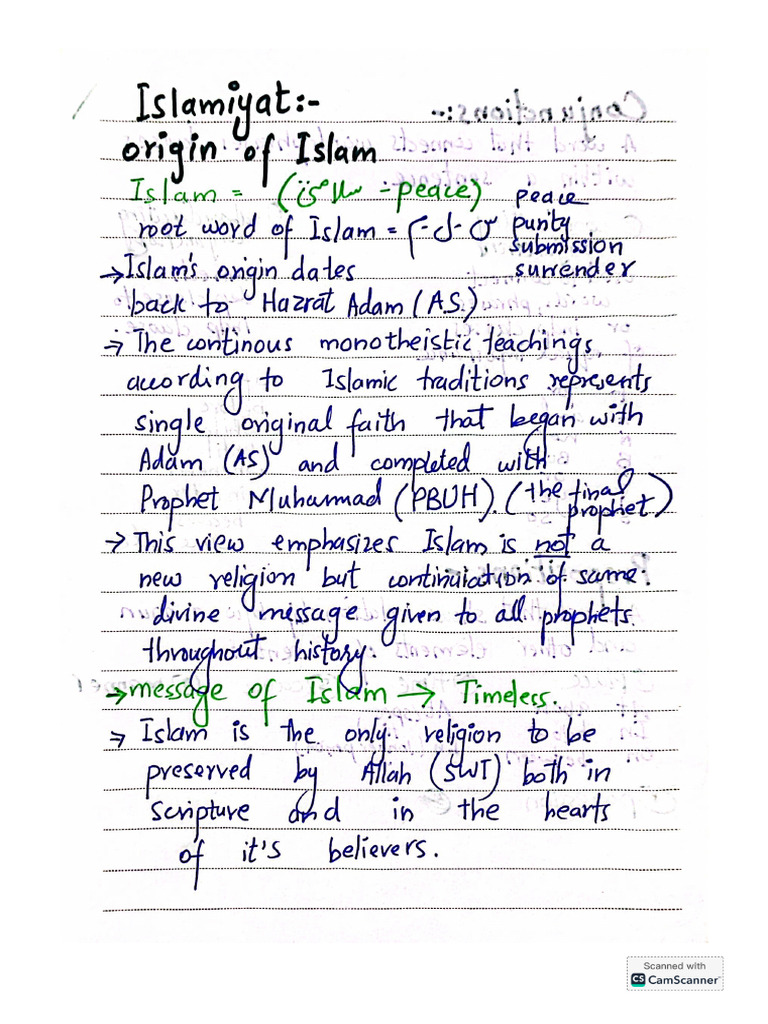 Islamiyat:-
origin of Islam
Islam = (سلامتی - peace)
peace
root word of Islam = س-ل-م
purity
submission
→ Islam's origin dates
surrender
back to Hazrat Adam (A.S.)
→ The continous monotheistic teachings
according to Islamic traditions represents
single original faith that began with
Adam (AS) and completed with
Prophet Muhammad (PBUH). (the final
prophet.)
→ This view emphasizes Islam is not a
new religion but continuiation of same
divine message given to all prophets
throughout history.
→ message of Islam → Timeless.
→ Islam is the only religion to be
preserved by Allah (SWT) both in
scripture and in the hearts
of it's believers.
Scanned with
CS CamScanner